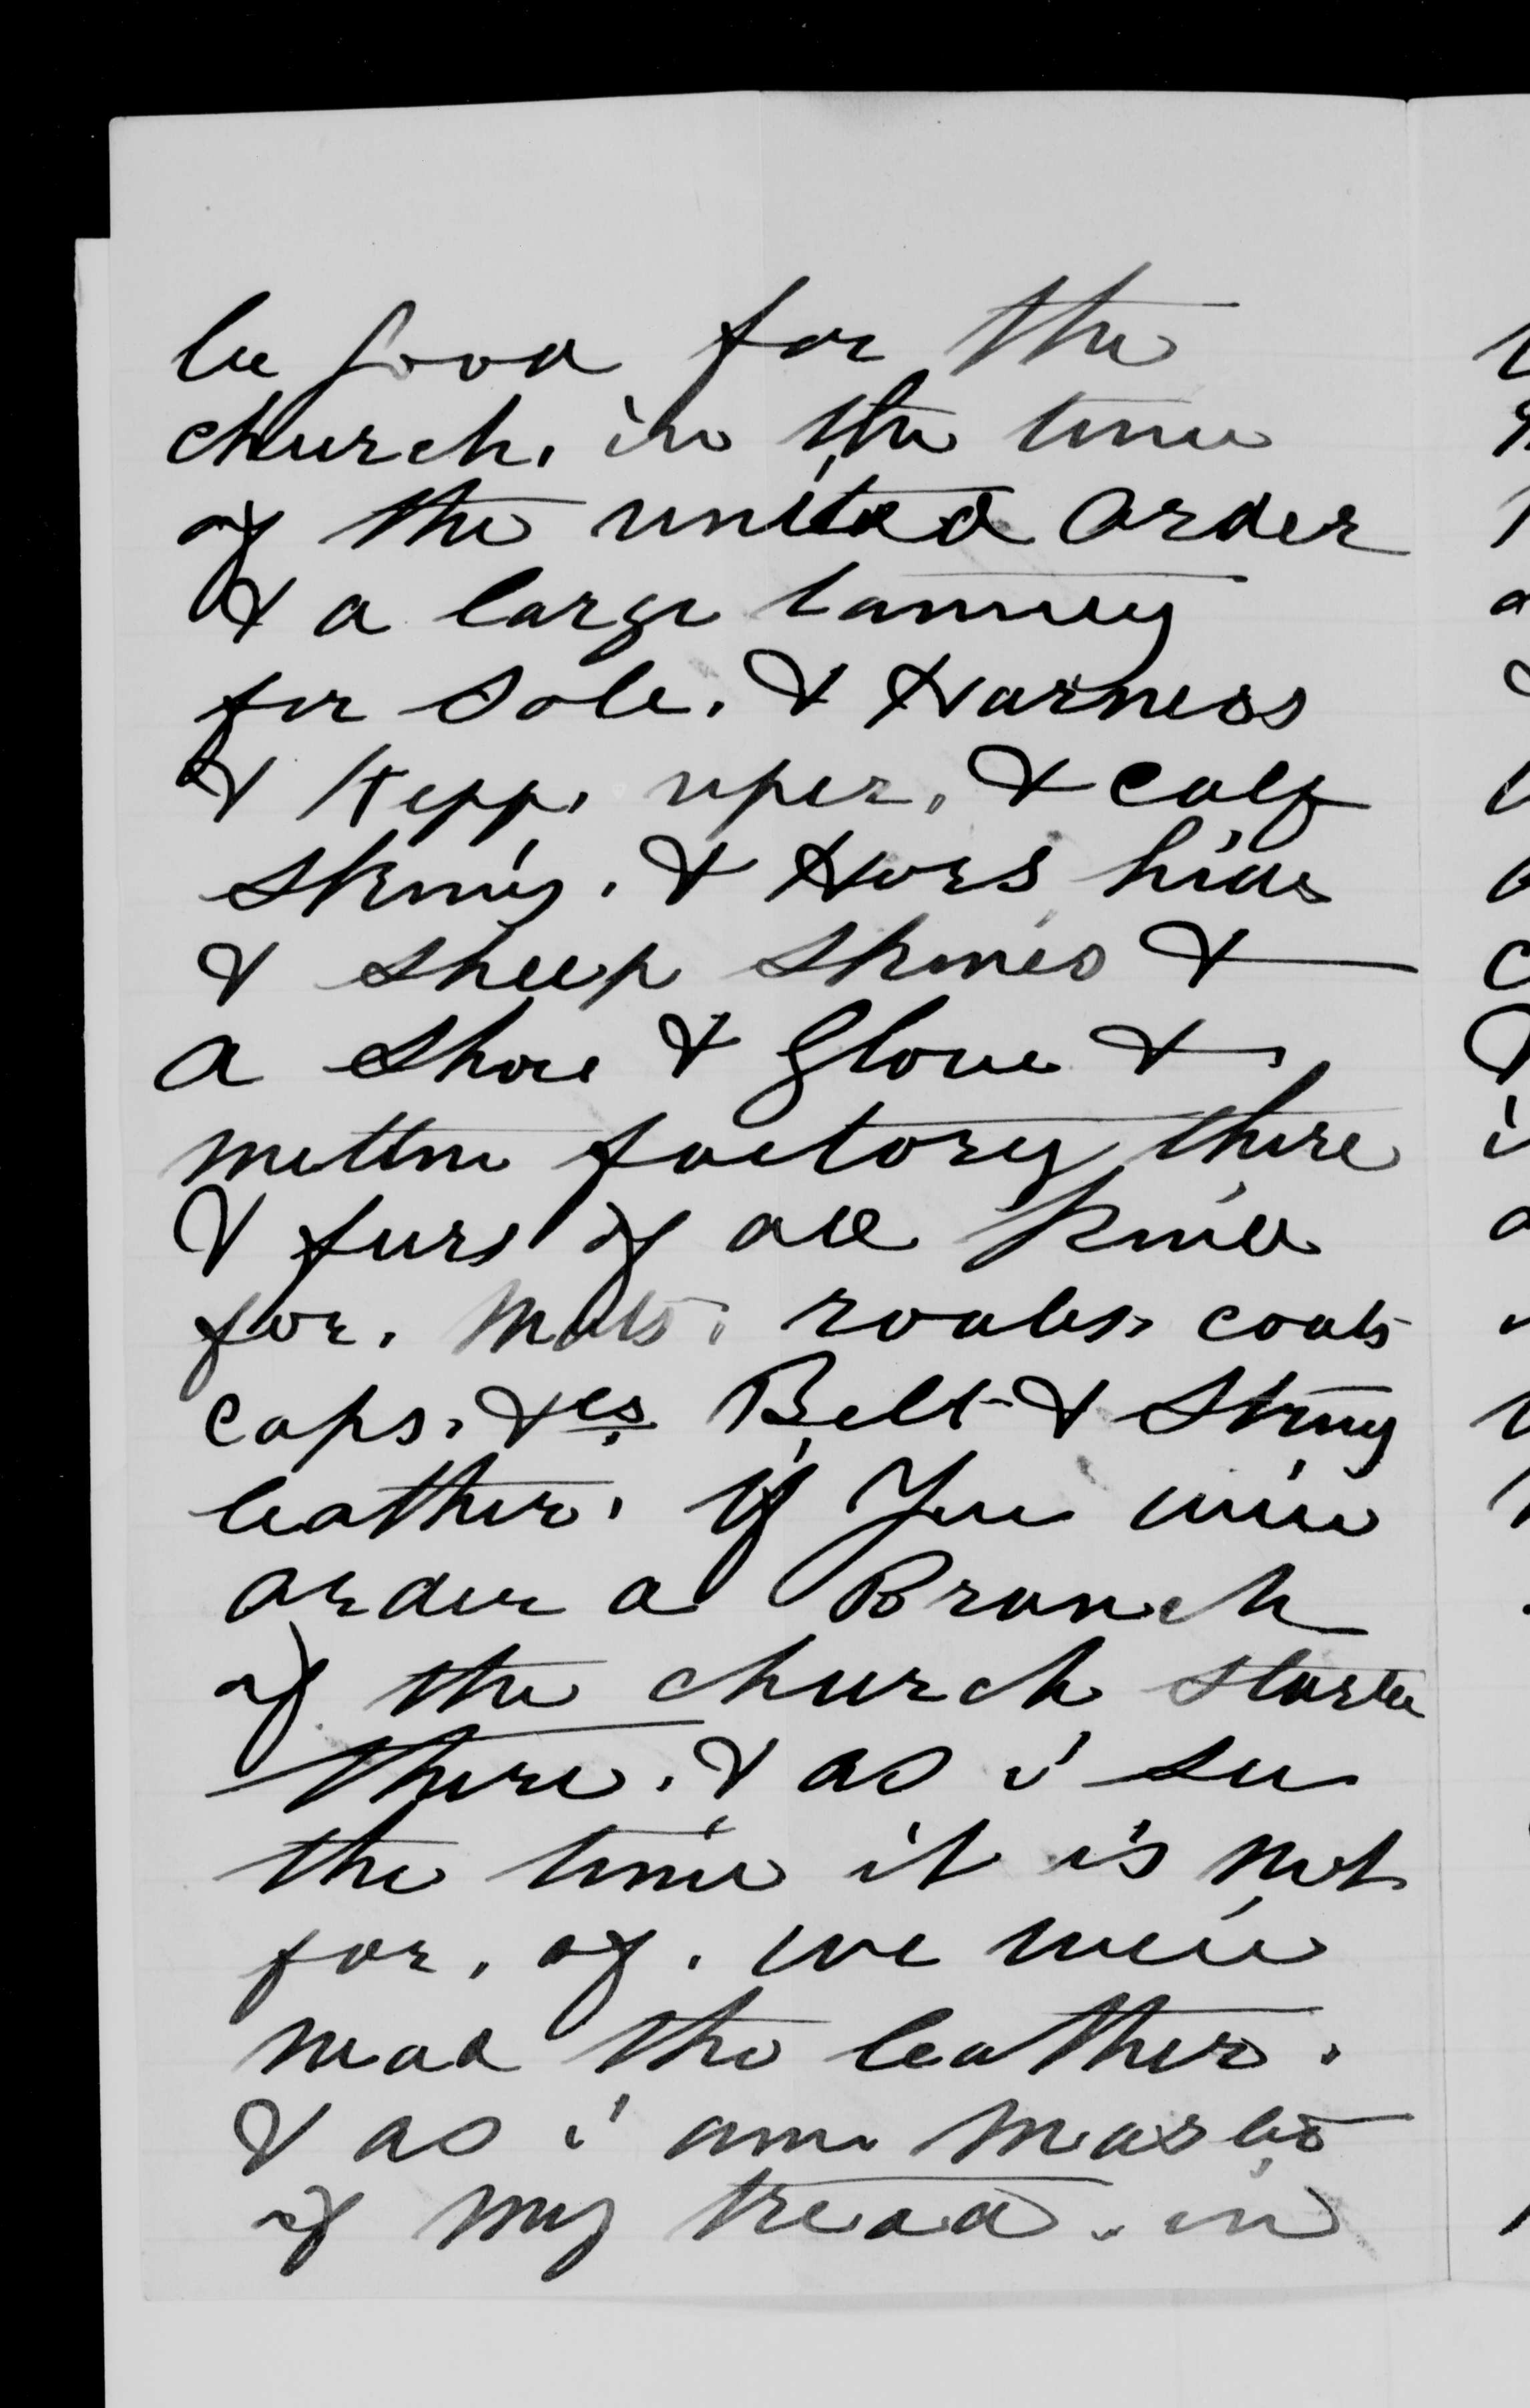 be good for the
church. in the time
of the united order
& a large tannery
for Sole. & Harness
& Kepp. uper. & calf
skins. & Hors hide
& sheep skines &
a shoe & Glove &
mitten factory there
& furs of all kind
for. Mats. roabs. coats
caps. &cs Belt & String
leather. if you will
order a Branch
of the church started
there. & as i see
the time it is not
for. of. we will
nead the leather.
& as i am master
of my tread. in